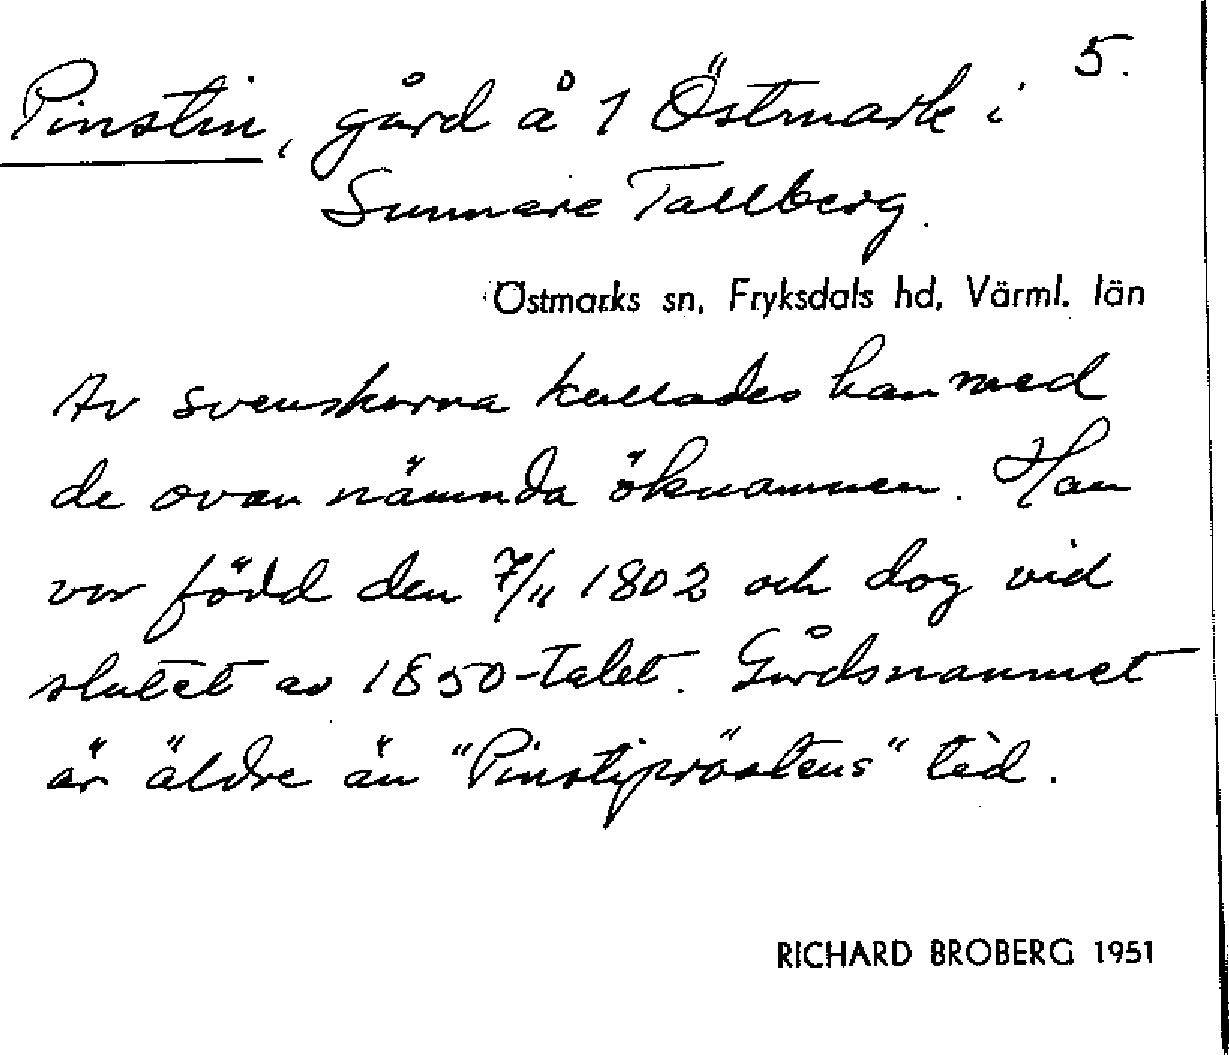 5.
Pinstin, gård å 1 Östmark i
Sunnare Tallberg.
Östmarks sn, Fryksdals hd, Värml. län
Av svenskarna kallades han med
de ovan nämnda öknamnen. Han
var född den 7/11 1802 och dog vid
slutet av 1850-talet. Gårdsnamnet
är äldre än "Pinstiprästens" tid.
RICHARD BROBERG 1951